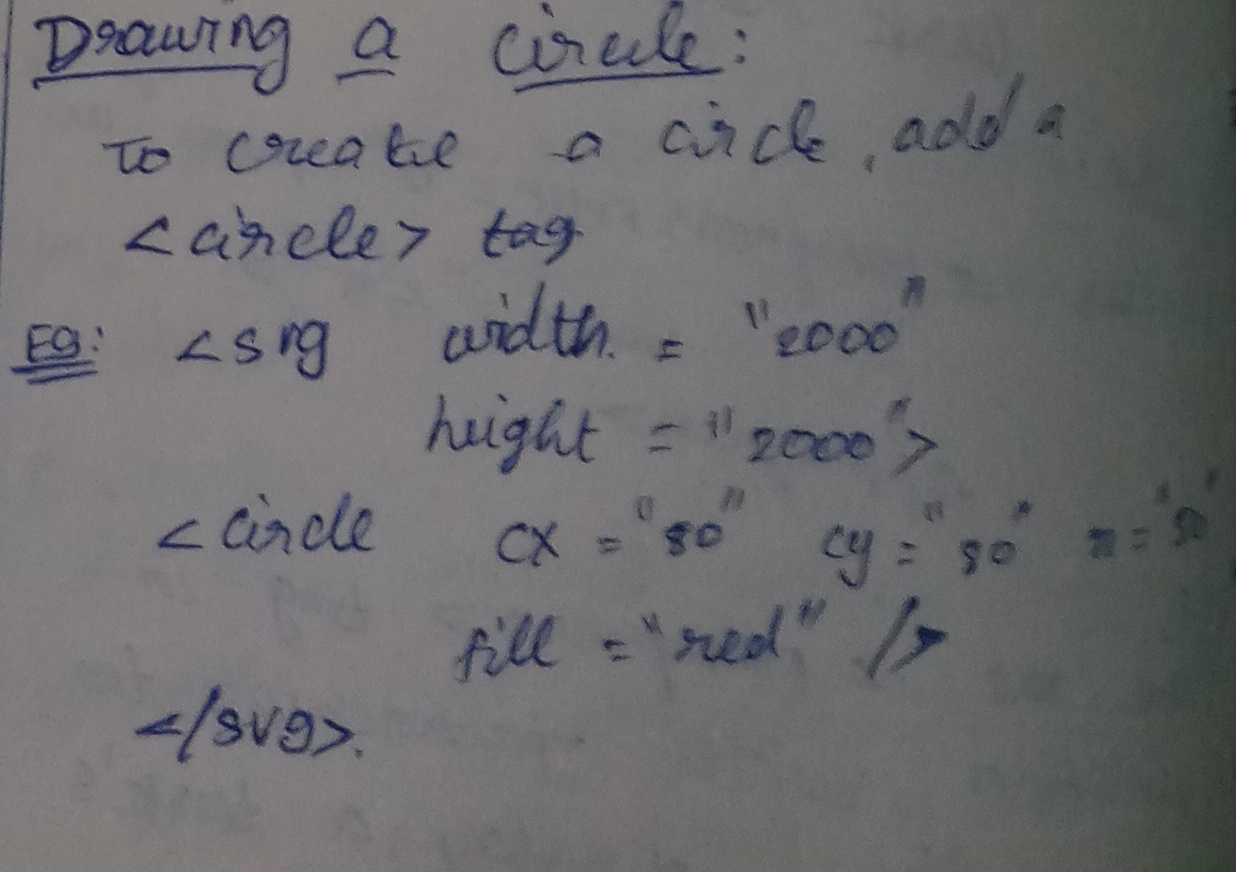 Drawing a circle:
To create a circle, add a
<circle> tag
Eg: <svg width = "2000"
height = "2000">
<circle cx = "80" cy = "80" r = "50"
fill = "red" />
</svg>.